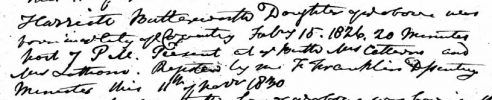 Harriett Butterworth Daughter of above was
born in city of Coventry Feby 15. 1826, 20 Minutes
past 7 P.M. Present at ye Birth Mrs Catterns and
Mrs Register'd by me F. Franklin Dissenting
Minister this 11th of Novr 1830